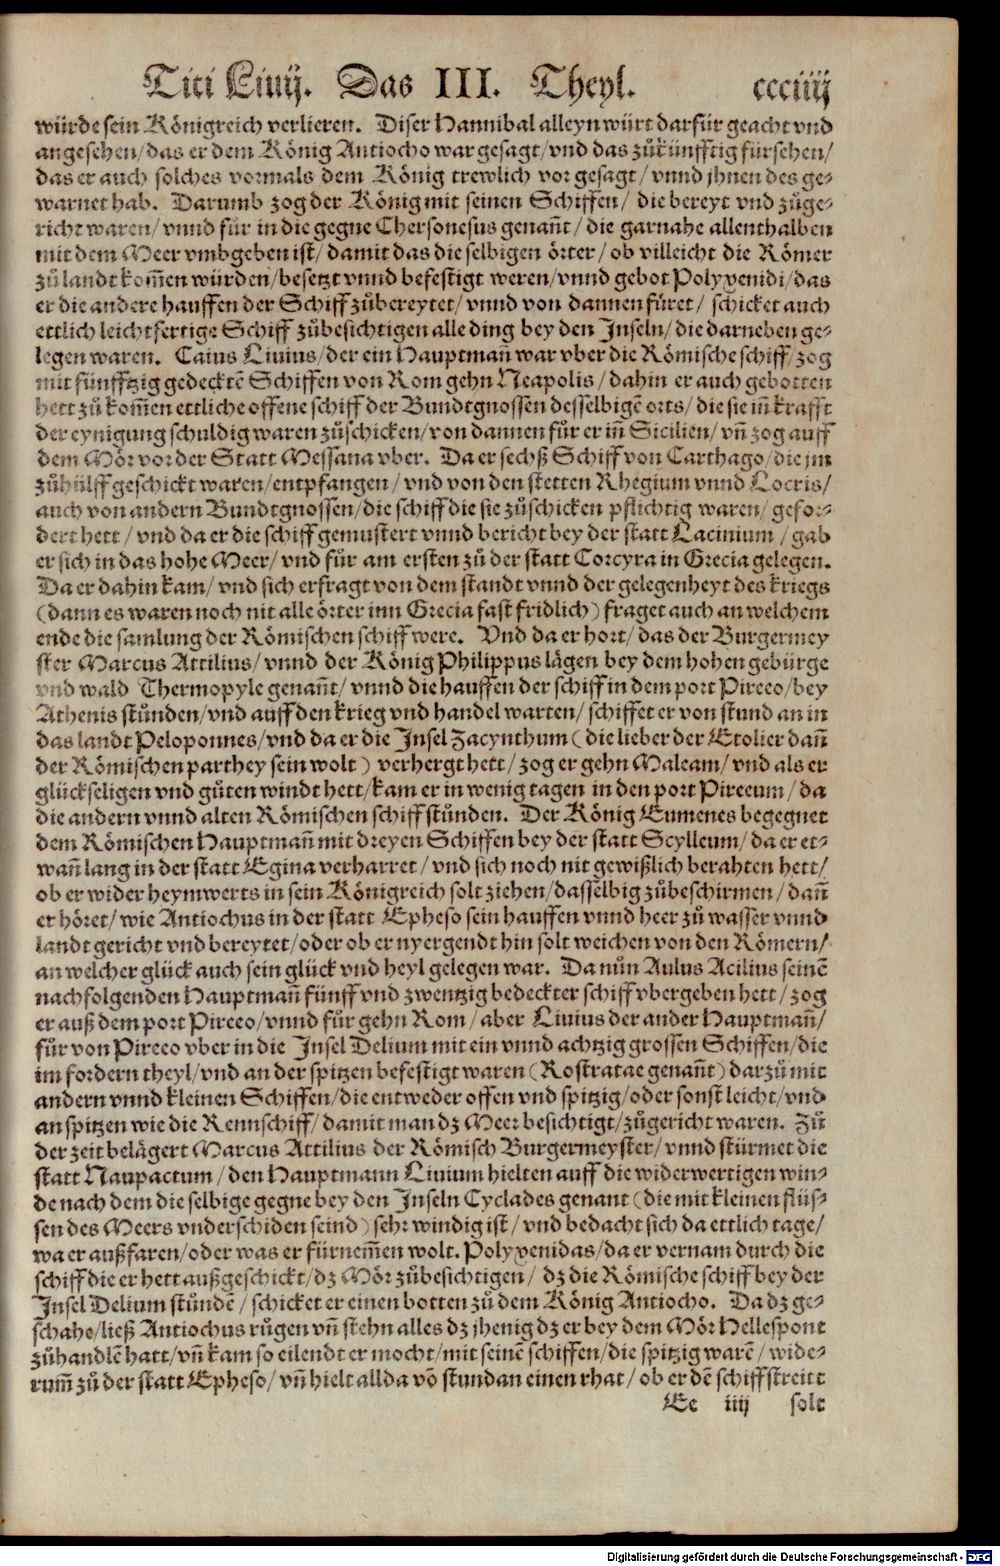 Titi Liuij. Das III. Theyl. ccciiij
würde sein Königreich verlieren. Diser Hannibal alleyn würt darfür geacht vnd
angesehen/ das er dem König Antiocho war gesagt/ vnd das zůkünfftig fürsehen/
das er auch solches vormals dem König trewlich vor gesagt/ vnnd jhnen des ge⸗
warnet hab. Darumb zog der König mit seinen Schiffen/ die bereyt vnd zůge⸗
richt waren/ vnnd für in die gegne Chersonesus genañt/ die garnahe allenthalben
mit dem Meer vmbgeben ist/ damit das die selbigen örter/ ob villeicht die Römer
zů landt kom̃en würden/ besetzt vnnd befestigt weren/ vnnd gebot Polyxenidi/ das
er die andere hauffen der Schiff zůbereytet/ vnnd von dannen füret/ schicket auch
ettlich leichtfertige Schiff zůbesichtigen alle ding bey den Inseln/ die darneben ge⸗
legen waren. Caius Liuius/ der ein Hauptmañ war vber die Römische schiff/ zog
mit fünfftzig gedecktē Schiffen von Rom gehn Neapolis/ dahin er auch gebotten
hett zů kom̃en ettliche offene schiff der Bundtgnossen desselbigē orts/ die sie iñ krafft
der eynigung schuldig waren zůschicken/ von dannen für er iñ Sicilien/ vñ zog auff
dem Mör vor der Statt Messana vber. Da er sechß Schiff von Carthago/ die jm
zůhülff geschickt waren/ entpfangen/ vnd von den stetten Rhegium vnnd Locris/
auch von andern Bundtgnossen/ die schiff die sie zůschicken pflichtig waren/ gefor⸗
dert hett/ vnd da er die schiff gemustert vnnd bericht bey der statt Lacinium/ gab
er sich in das hohe Meer/ vnd für am ersten zů der statt Corcyra in Grecia gelegen.
Da er dahin kam/ vnd sich erfragt von dem standt vnnd der gelegenheyt des kriegs
(dann es waren noch nit alle örter inn Grecia fast fridlich) fraget auch an welchem
ende die samlung der Römischen schiff were. Vnd da er hort/ das der Burgermey
ster Marcus Attilius/ vnnd der König Philippus lägen bey dem hohen gebürge
vnd wald Thermopyle genañt/ vnnd die hauffen der schiff in dem port Pireeo/ bey
Athenis stůnden/ vnd auff den krieg vnd handel warten/ schiffet er von stund an in
das landt Peloponnes/ vnd da er die Insel Zacynthum (die lieber der Etolier dañ
der Römischen parthey sein wolt) verhergt hett/ zog er gehn Maleam/ vnd als er
glückseligen vnd gůten windt hett/ kam er in wenig tagen in den port Pireeum/ da
die andern vnnd alten Römischen schiff stůnden. Der König Eumenes begegnet
dem Römischen Hauptmañ mit dreyen Schiffen bey der statt Scylleum/ da er et⸗
wañ lang in der statt Egina verharret/ vnd sich noch nit gewißlich berahten hett/
ob er wider heymwerts in sein Königreich solt ziehen/ dasselbig zůbeschirmen/ dañ
er höret/ wie Antiochus in der statt Epheso sein hauffen vnnd heer zů wasser vnnd
landt gericht vnd bereytet/ oder ob er nyergendt hin solt weichen von den Römern/
an welcher glück auch sein glück vnd heyl gelegen war. Da nůn Aulus Acilius seinē
nachfolgenden Hauptmañ fünff vnd zwentzig bedeckter schiff vbergeben hett/ zog
er auß dem port Pireeo/ vnnd für gehn Rom/ aber Liuius der ander Hauptmañ/
für von Pireeo vber in die Insel Delium mit ein vnnd achtzig grossen Schiffen/ die
im fordern theyl/ vnd an der spitzen befestigt waren (Rostratae genañt) darzů mit
andern vnnd kleinen Schiffen/ die entweder offen vnd spitzig/ oder sonst leicht/ vnd
an spitzen wie die Rennschiff/ damit man dz Meer besichtigt/ zůgericht waren. Zů
der zeit belägert Marcus Attilius der Römisch Burgermeyster/ vnnd stürmet die
statt Naupactum/ den Hauptmann Liuium hielten auff die widerwertigen win⸗
de nach dem die selbige gegne bey den Inseln Cyclades genant (die mit kleinen flüs⸗
sen des Meers vnderschiden seind) sehr windig ist/ vnd bedacht sich da ettlich tage/
wa er außfaren/ oder was er fürnem̃en wolt. Polyxenidas/ da er vernam durch die
schiff die er hett außgeschickt/ dz Mör zůbesichtigen/ dz die Römische schiff bey der
Insel Delium stůndē/ schicket er einen botten zů dem König Antiocho. Da dz ge⸗
schahe/ ließ Antiochus růgen vñ stehn alles dz jhenig dz er bey dem Mör Hellespont
zůhandlē hatt/ vñ kam so eilendt er mocht/ mit seinē schiffen/ die spitzig warē/ wide⸗
rum̃ zů der statt Epheso/ vñ hielt allda vō stundan einen rhat/ ob er dē schiffstreitt
Ee iiij solt
Digitalisierung gefördert durch die Deutsche Forschungsgemeinschaft - DFG